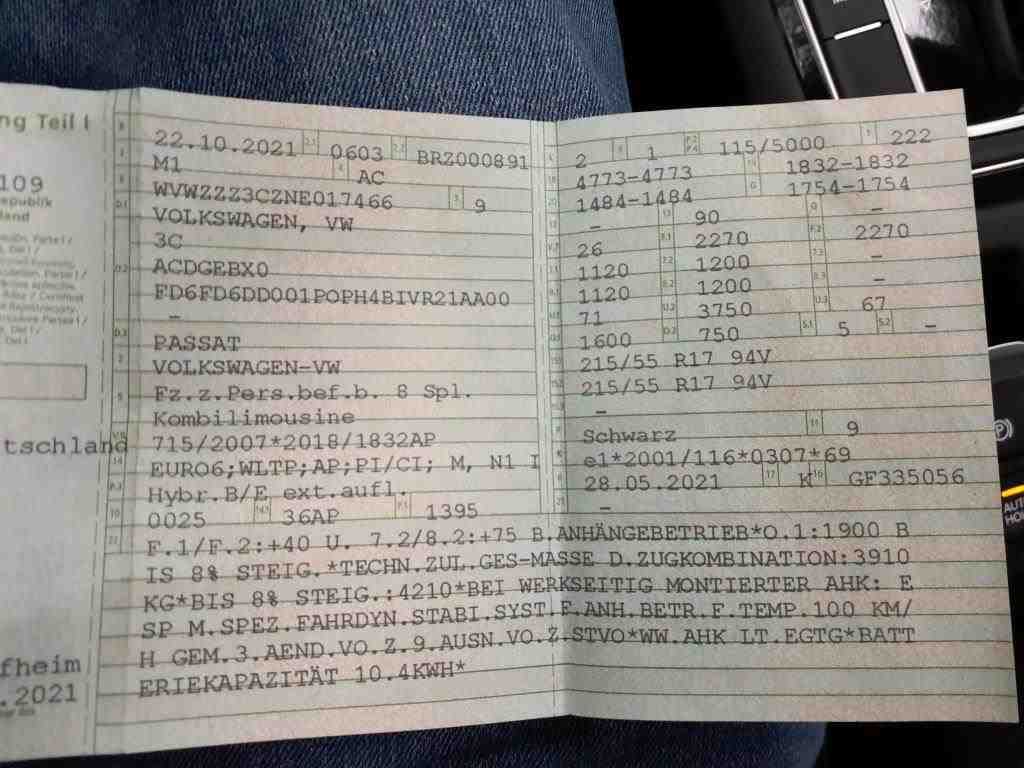 ng Teil I
109
epublik
land
tschland
fheim
.2021
B 22.10.2021 2.1 0603 2.2 BRZ000891
J M1 4 AC
E WVWZZZ3CZNE017466 3 9
D.1 VOLKSWAGEN, VW
3C
D.2 ACDGEBX0
FD6FD6DD001POPH4BIVR21AA00
–
D.3 PASSAT
2 VOLKSWAGEN-VW
5 Fz.z.Pers.bef.b. 8 Spl.
Kombilimousine
V.9 715/2007*2018/1832AP
14 EURO6;WLTP;AP;PI/CI; M, N1 I
P.3 Hybr.B/E ext.aufl.
10 0025 14.1 36AP P.1 1395
L 2 9 1 P.2 P.4 115/5000 T 222
18 4773-4773 19 1832-1832
20 1484-1484 G 1754-1754
12 – 13 90 Q –
V.7 26 F.1 2270 F.2 2270
7.1 1120 7.2 1200 7.3 –
8.1 1120 8.2 1200 8.3 –
U.1 71 U.2 3750 U.3 67
O.1 1600 O.2 750 S.1 5 S.2 –
15.1 215/55 R17 94V
15.2 215/55 R17 94V
15.3 –
R Schwarz 11 9
K e1*2001/116*0307*69
6 28.05.2021 17 K 16 GF335056
21 –
22 F.1/F.2:+40 U. 7.2/8.2:+75 B.ANHÄNGEBETRIEB*O.1:1900 B
IS 8% STEIG.*TECHN.ZUL.GES-MASSE D.ZUGKOMBINATION:3910
KG*BIS 8% STEIG.:4210*BEI WERKSEITIG MONTIERTER AHK: E
SP M.SPEZ.FAHRDYN.STABI.SYST.F.ANH.BETR.F.TEMP.100 KM/
H GEM.3.AEND.VO.Z.9.AUSN.VO.Z.STVO*WW.AHK LT.EGTG*BATT
ERIEKAPAZITÄT 10.4KWH*